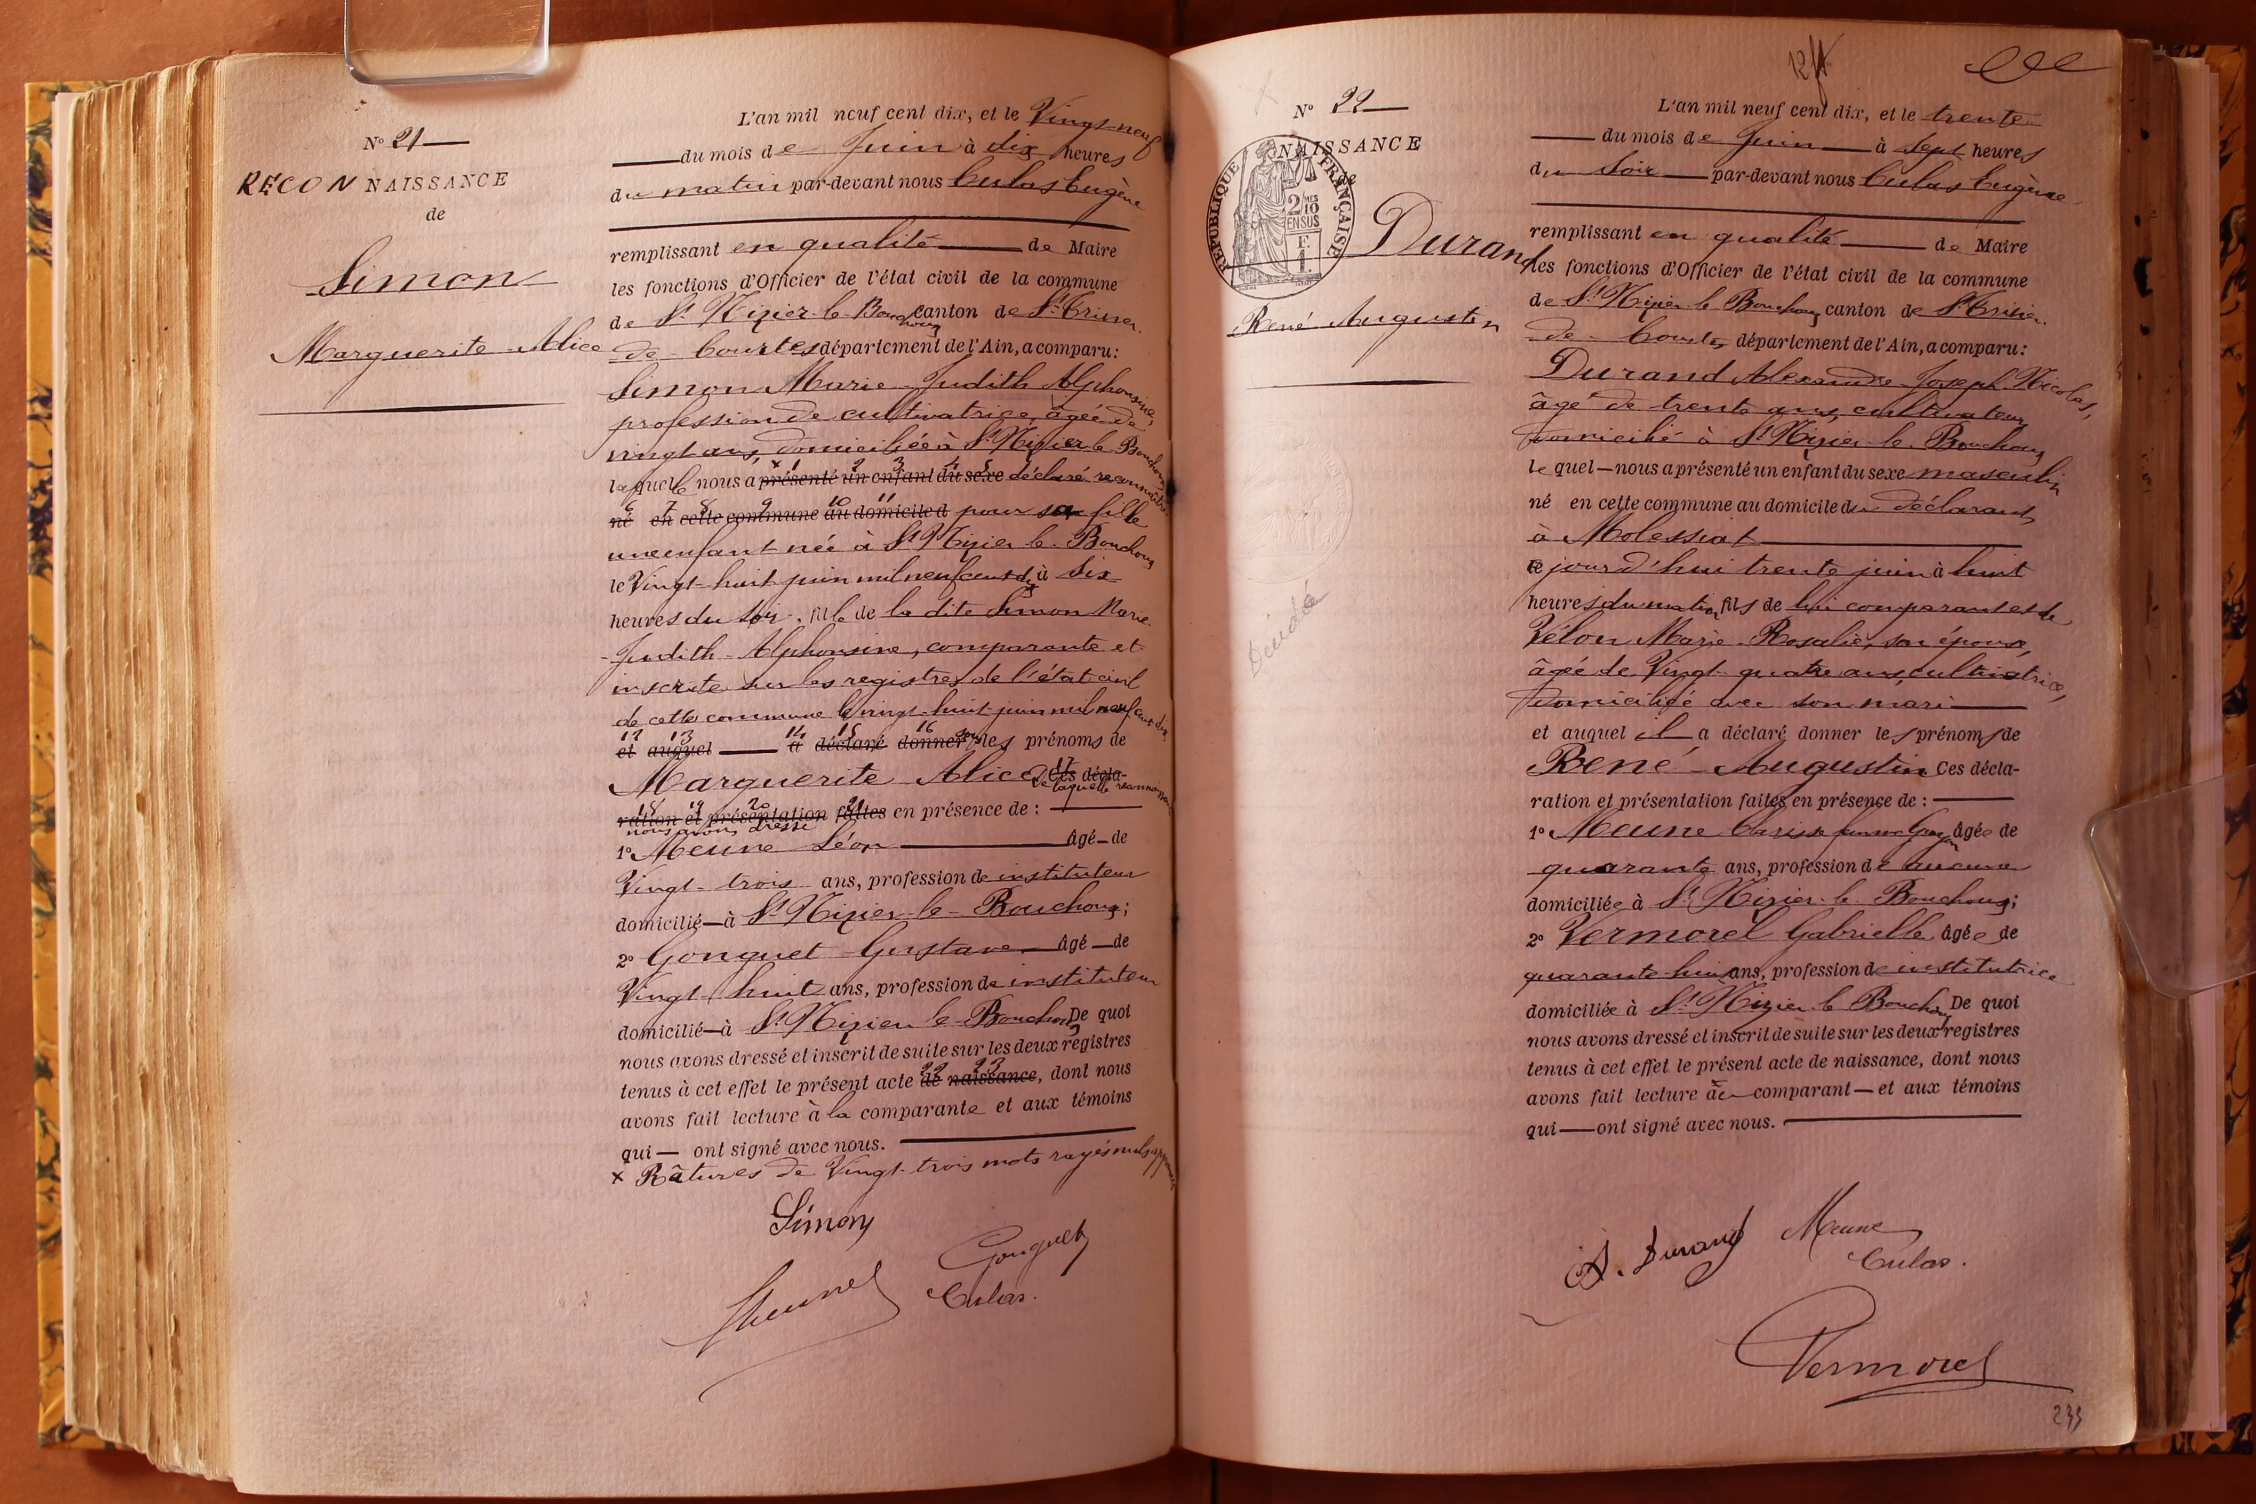 N° 21
RECONNAISSANCE
de
Simon
Marguerite Alice
L'an mil neuf cent dix, et le Vingt-neuf
du mois de Juin à dix heures
du matin par-devant nous Culas Eugène
remplissant en qualité de Maire
les fonctions d'Officier de l'état civil de la commune
de St Nizier-le-Bouchoux canton de St Trivier
de Courtes département de l'Ain, a comparu :
Simon Marie Judith Alphonsine,
profession de cultivatrice, âgée de
vingt ans, domiciliée à St Nizier le Bouchoux
laquelle nous a présenté un enfant du sexe déclaré reconnaître
x 1 2 3 4 5
6 7 8 9 10 11
né en cette commune au domicile d pour sa fille
une enfant née à St Nizier le Bouchoux
le Vingt-huit juin mil neuf cent dix à Six
heures du soir, fille de la dite Simon Marie
Judith Alphonsine, comparante et
inscrite sur les registres de l'état civil
de cette commune le vingt-huit juin mil neuf cent dix
12 13 14 15 16
et auquel a déclaré donner sous les prénoms de
Marguerite Alice Ces décla-
17
De laquelle reconnaissance
18 19 20 21
ration et présentation faites en présence de :
nous avons dressé
1° Meune Léon âgé de
Vingt-trois ans, profession de instituteur
domicilié à St Nizier-le-Bouchoux ;
2° Gonguet Gustave âgé de
Vingt huit ans, profession de instituteur
domicilié à St Nizier le Bouchoux De quoi
nous avons dressé et inscrit de suite sur les deux registres
22 23
tenus à cet effet le présent acte de naissance, dont nous
avons fait lecture à la comparante et aux témoins
qui ont signé avec nous.
x Râtures de Vingt-trois mots rayés nuls approuvés
Simon
Gonguet
Meune
Culas.
N° 22
NAISSANCE
de
RÉPUBLIQUE FRANÇAISE
2/10 MES
EN SUS
F.
1.
Durand
René Augustin
Décédé
L'an mil neuf cent dix, et le trente
du mois de Juin à Sept heures
du Soir par-devant nous Culas Eugène
remplissant en qualité de Maire
les fonctions d'Officier de l'état civil de la commune
de St Nizier le Bouchoux canton de St Trivier
de Courtes département de l'Ain, a comparu :
Durand Alexandre Joseph Nicolas,
âgé de trente ans, cultivateur
domicilié à St Nizier-le-Bouchoux
lequel nous a présenté un enfant du sexe masculin
né en cette commune au domicile du déclarant
à Molessiat
ce jourd'hui trente juin à huit
heures du matin, fils de lui comparant et de
Vélon Marie-Rosalie, son épouse,
âgée de Vingt-quatre ans, cultivatrice,
domiciliée avec son mari
et auquel il a déclaré donner les prénoms de
René Augustin Ces décla-
ration et présentation faites en présence de :
1° Meune Clarisse femme âgée de
quarante ans, profession de aucune
domiciliée à St Nizier le Bouchoux ;
2° Vermorel Gabrielle âgée de
quarante-huit ans, profession de institutrice
domiciliée à St Nizier le Bouchoux De quoi
nous avons dressé et inscrit de suite sur les deux registres
tenus à cet effet le présent acte de naissance, dont nous
avons fait lecture au comparant et aux témoins
qui ont signé avec nous.
A. Durand
Meune
Culas.
Vermorel
233